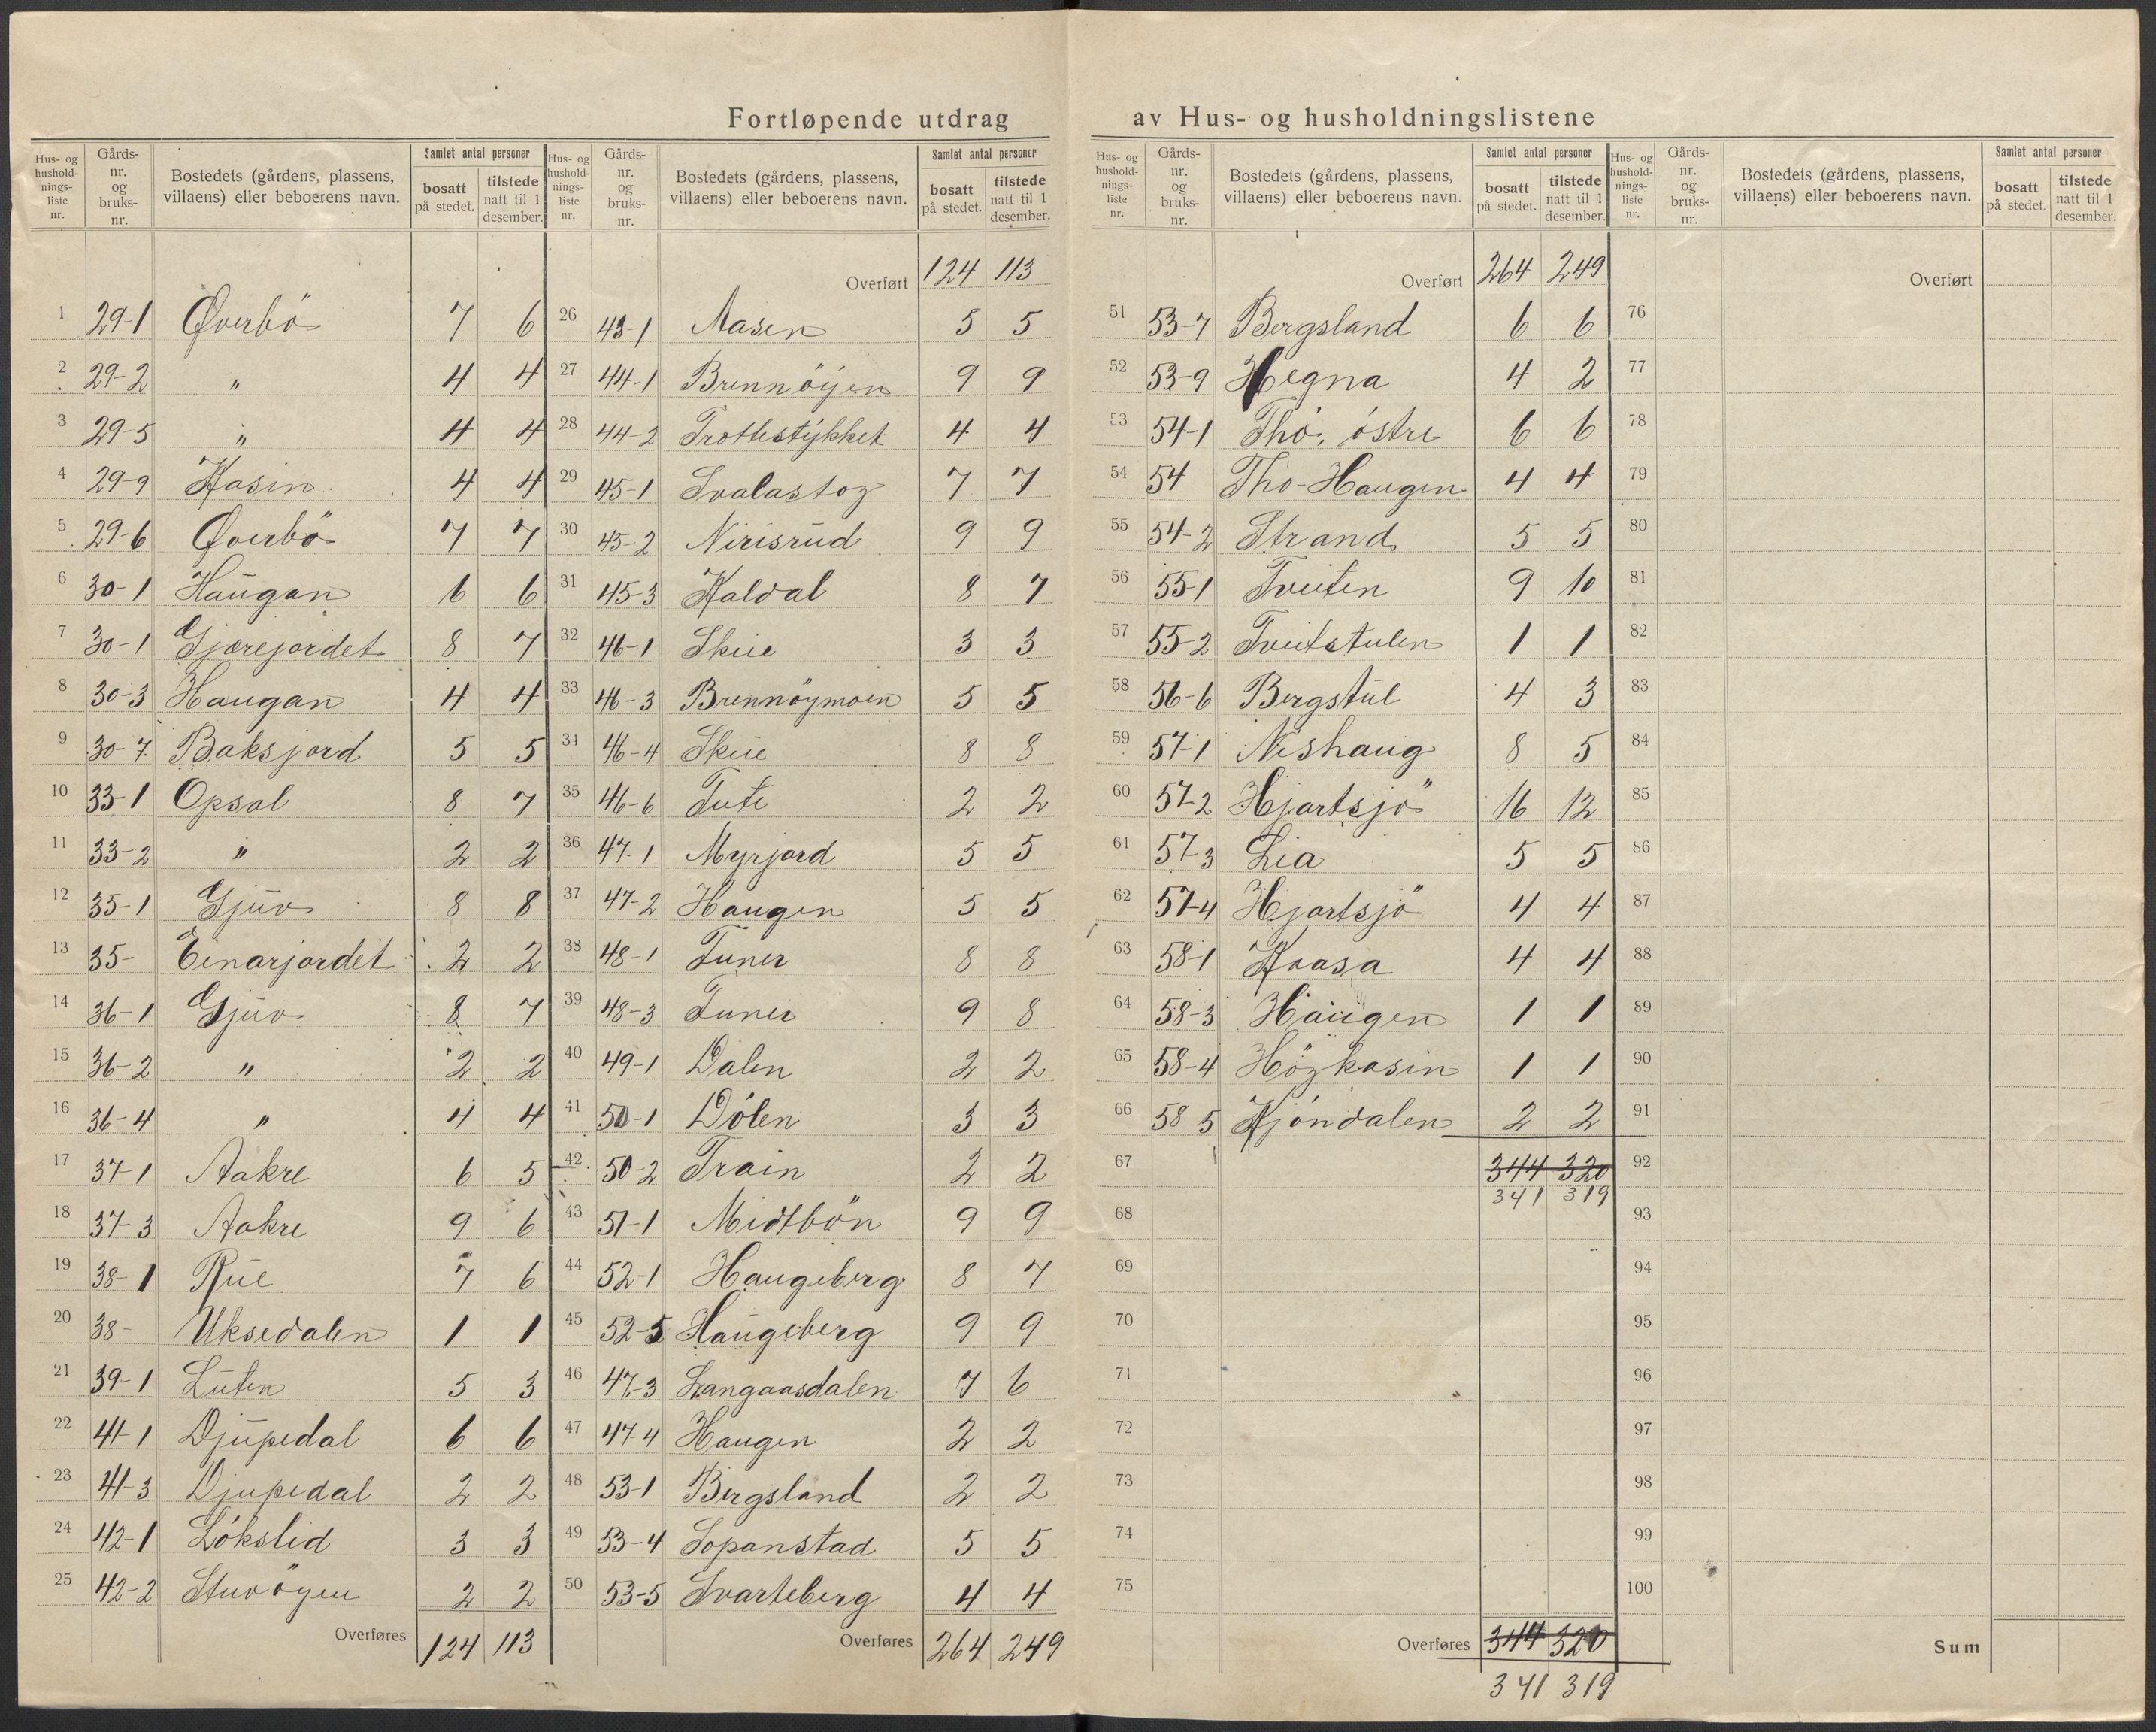 Fortløpende utdrag av Hus- og husholdningslistene
Hus- og husholdnings-liste nr. | Gårds-nr. og bruks-nr. | Bostedets (gårdens, plassens, villaens) eller beboerens navn. | Samlet antal personer | bosatt på stedet. | tilstede natt til 1 desember.
1 29-1 Øverbö 7 6
2 29-2 " 4 4
3 29-5 " 4 4
4 29-9 Kasin 4 4
5 29-6 Øverbö 7 7
6 30-1 Haugan 6 6
7 30-1 Gjærejordet 8 7
8 30-3 Haugan 4 4
9 30-7 Baksjord 5 5
10 33-1 Opsal 8 7
11 33-2 " 2 2
12 35-1 Gjuv 8 8
13 35- Einarjordet 2 2
14 36-1 Gjuv 8 7
15 36-2 " 2 2
16 36-4 " 4 4
17 37-1 Aakre 6 5
18 37-3 Aakre 9 6
19 38-1 Rue 7 6
20 38- Uksedalen 1 1
21 39-1 Luten 5 3
22 41-1 Djupedal 6 6
23 41-3 Djupedal 2 2
24 42-1 Lökslid 3 3
25 42-2 Stuvöyen 2 2
Overføres 124 113
Hus- og husholdnings-liste nr. | Gårds-nr. og bruks-nr. | Bostedets (gårdens, plassens, villaens) eller beboerens navn. | Samlet antal personer | bosatt på stedet. | tilstede natt til 1 desember.
Overført 124 113
26 43-1 Aasen 5 5
27 44-1 Brennöyen 9 9
28 44-2 Trottestykket 4 4
29 45-1 Svalastog 7 7
30 45-2 Nirisrud 9 9
31 45-3 Kaldal 8 7
32 46-1 Skue 3 3
33 46-3 Brennöymoen 5 5
34 46-4 Skue 8 8
35 46-6 Tute 2 2
36 47-1 Myrjord 5 5
37 47-2 Haugen 5 5
38 48-1 Tuner 8 8
39 48-3 Tuner 9 8
40 49-1 Dalen 2 2
41 50-1 Dölen 3 3
42 50-2 Train 2 2
43 51-1 Midtbön 9 9
44 52-1 Haugeberg 8 7
45 52-5 Haugeberg 9 9
46 47-3 Langaasdalen 7 6
47 47-4 Haugen 2 2
48 53-1 Bergsland 2 2
49 53-4 Sopanstad 5 5
50 53-5 Svarteberg 4 4
Overføres 264 249
Hus- og husholdnings-liste nr. | Gårds-nr. og bruks-nr. | Bostedets (gårdens, plassens, villaens) eller beboerens navn. | Samlet antal personer | bosatt på stedet. | tilstede natt til 1 desember.
Overført 264 249
51 53-7 Bergsland 6 6
52 53-9 Hegna 4 2
53 54-1 Tho, östre 6 6
54 54 Tho-Haugen 4 4
55 54-2 Strand 5 5
56 55-1 Tveiten 9 10
57 55-2 Tveitstulen 1 1
58 56-6 Bergstul 4 3
59 57-1 Neshaug 8 5
60 57-2 Hjartsjö 16 12
61 57-3 Lia 5 5
62 57-4 Hjartsjö 4 4
63 58-1 Kvasa 4 4
64 58-3 Haugen 1 1
65 58-4 Högkasin 1 1
66 58 5 Kjöndalen 2 2
67 344 320
341 319
68
69
70
71
72
73
74
75
Overføres 344 320
341 319
Hus- og husholdnings-liste nr. | Gårds-nr. og bruks-nr. | Bostedets (gårdens, plassens, villaens) eller beboerens navn. | Samlet antal personer | bosatt på stedet. | tilstede natt til 1 desember.
Overført
76
77
78
79
80
81
82
83
84
85
86
87
88
89
90
91
92
93
94
95
96
97
98
99
100
Sum